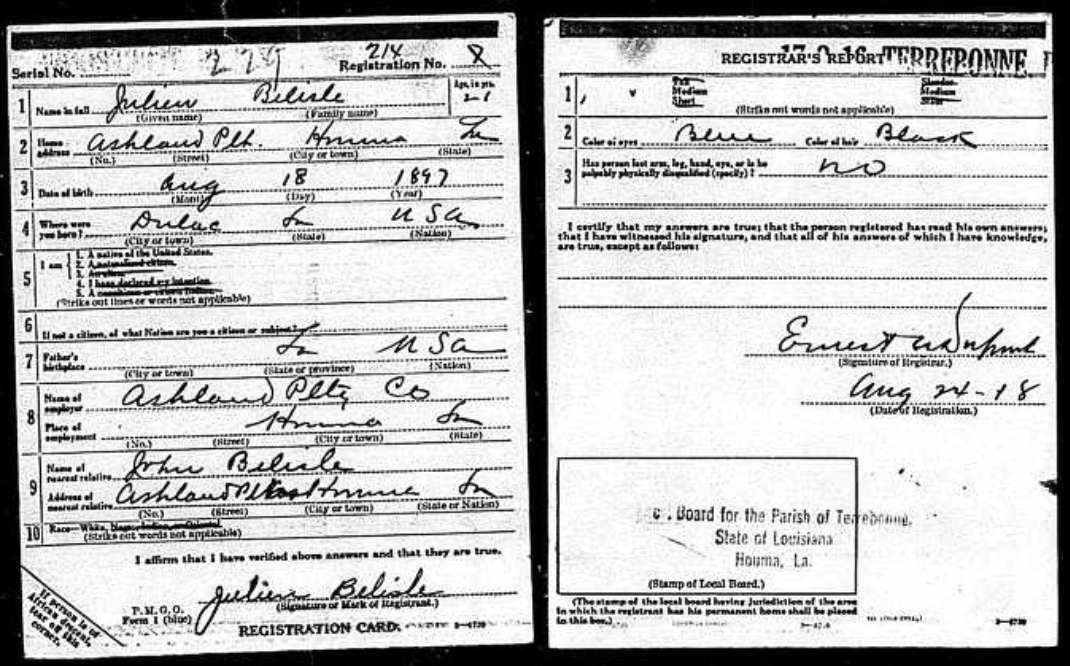 279
214
Serial No. Registration No. 8
1 Name in full Julien Belisle Age, in yrs. 21
(Given name) (Family name)
2 Home address Ashland Plt. Houma La
(No.) (Street) (City or town) (State)
3 Date of birth Aug 18 1897
(Month) (Day) (Year)
4 Where were you born? Dulac La USA
(City or town) (State) (Nation)
5 I am
1. A native of the United States.
2. A naturalized citizen.
3. An alien.
4. I have declared my intention.
5. A
(Strike out lines or words not applicable)
6 If not a citizen, of what Nation are you a citizen or subject?
7 Father's birthplace La USA
(City or town) (State or province) (Nation)
8 Name of employer Ashland Pltg Co
Place of employment Houma La
(No.) (Street) (City or town) (State)
9 Name of nearest relative John Belisle
Address of nearest relative Ashland Houma La
(No.) (Street) (City or town) (State or Nation)
10 Race—White, Negro, Indian, or Oriental
(Strike out words not applicable)
I affirm that I have verified above answers and that they are true.
Julien Belisle
(Signature or Mark of Registrant.)
P. M. G. O.
Form 1 (blue)
REGISTRATION CARD.
If person is of
African descent,
tear off this
corner.
REGISTRAR'S REPORT TERREBONNE
1 Tall Slender
Medium Medium
Short Stout
(Strike out words not applicable)
2 Color of eyes Blue Color of hair Black
3 Has person lost arm, leg, hand, eye, or is he
palpably physically disqualified (specify)? no
I certify that my answers are true; that the person registered has read his own answers;
that I have witnessed his signature, and that all of his answers of which I have knowledge,
are true, except as follows:
Ernest
(Signature of Registrar.)
Aug 24-18
(Date of Registration.)
Board for the Parish of Terrebonne,
State of Louisiana
Houma, La.
(Stamp of Local Board.)
(The stamp of the local board having jurisdiction of the area
in which the registrant has his permanent home shall be placed
in this box.)